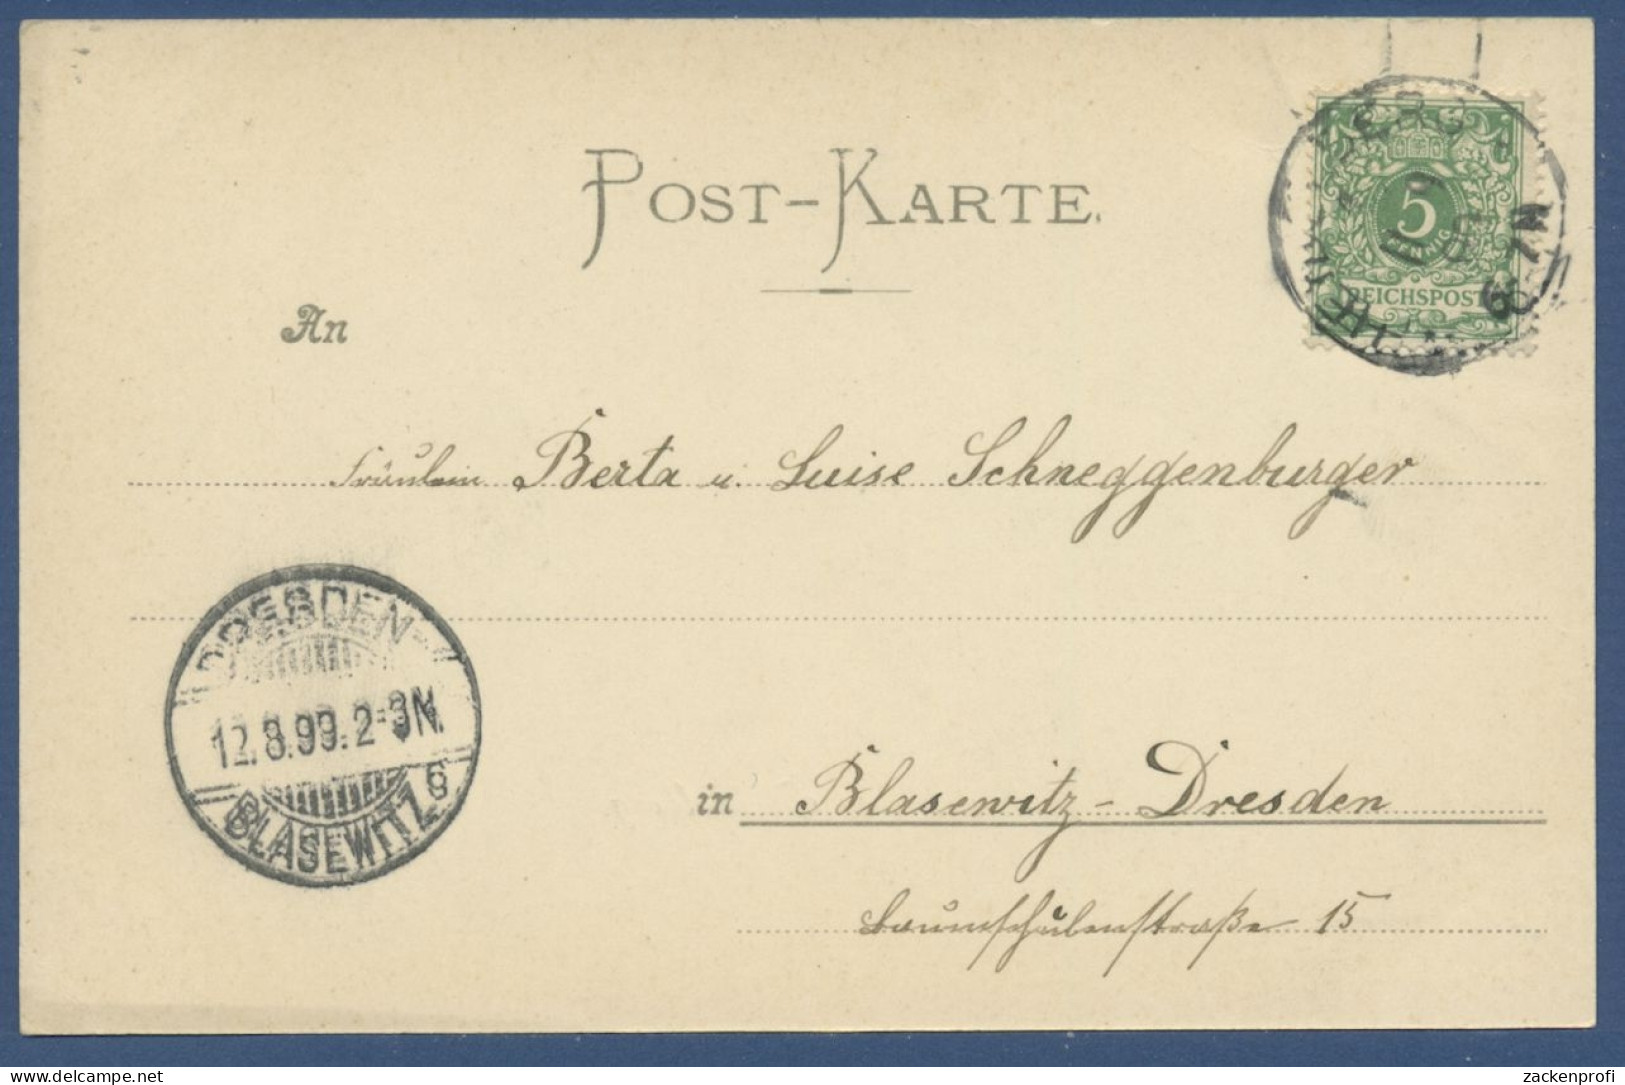 POST-KARTE.
5
PFENNIG
REICHSPOST
6-7N
An
Fräulein Berta u. Luise Schneggenburger
DRESDEN-
12.8.99.2-3N.
BLASEWITZ
in Blasewitz-Dresden
Baumschulenstraße 15
delcampe.net
zackenprofi